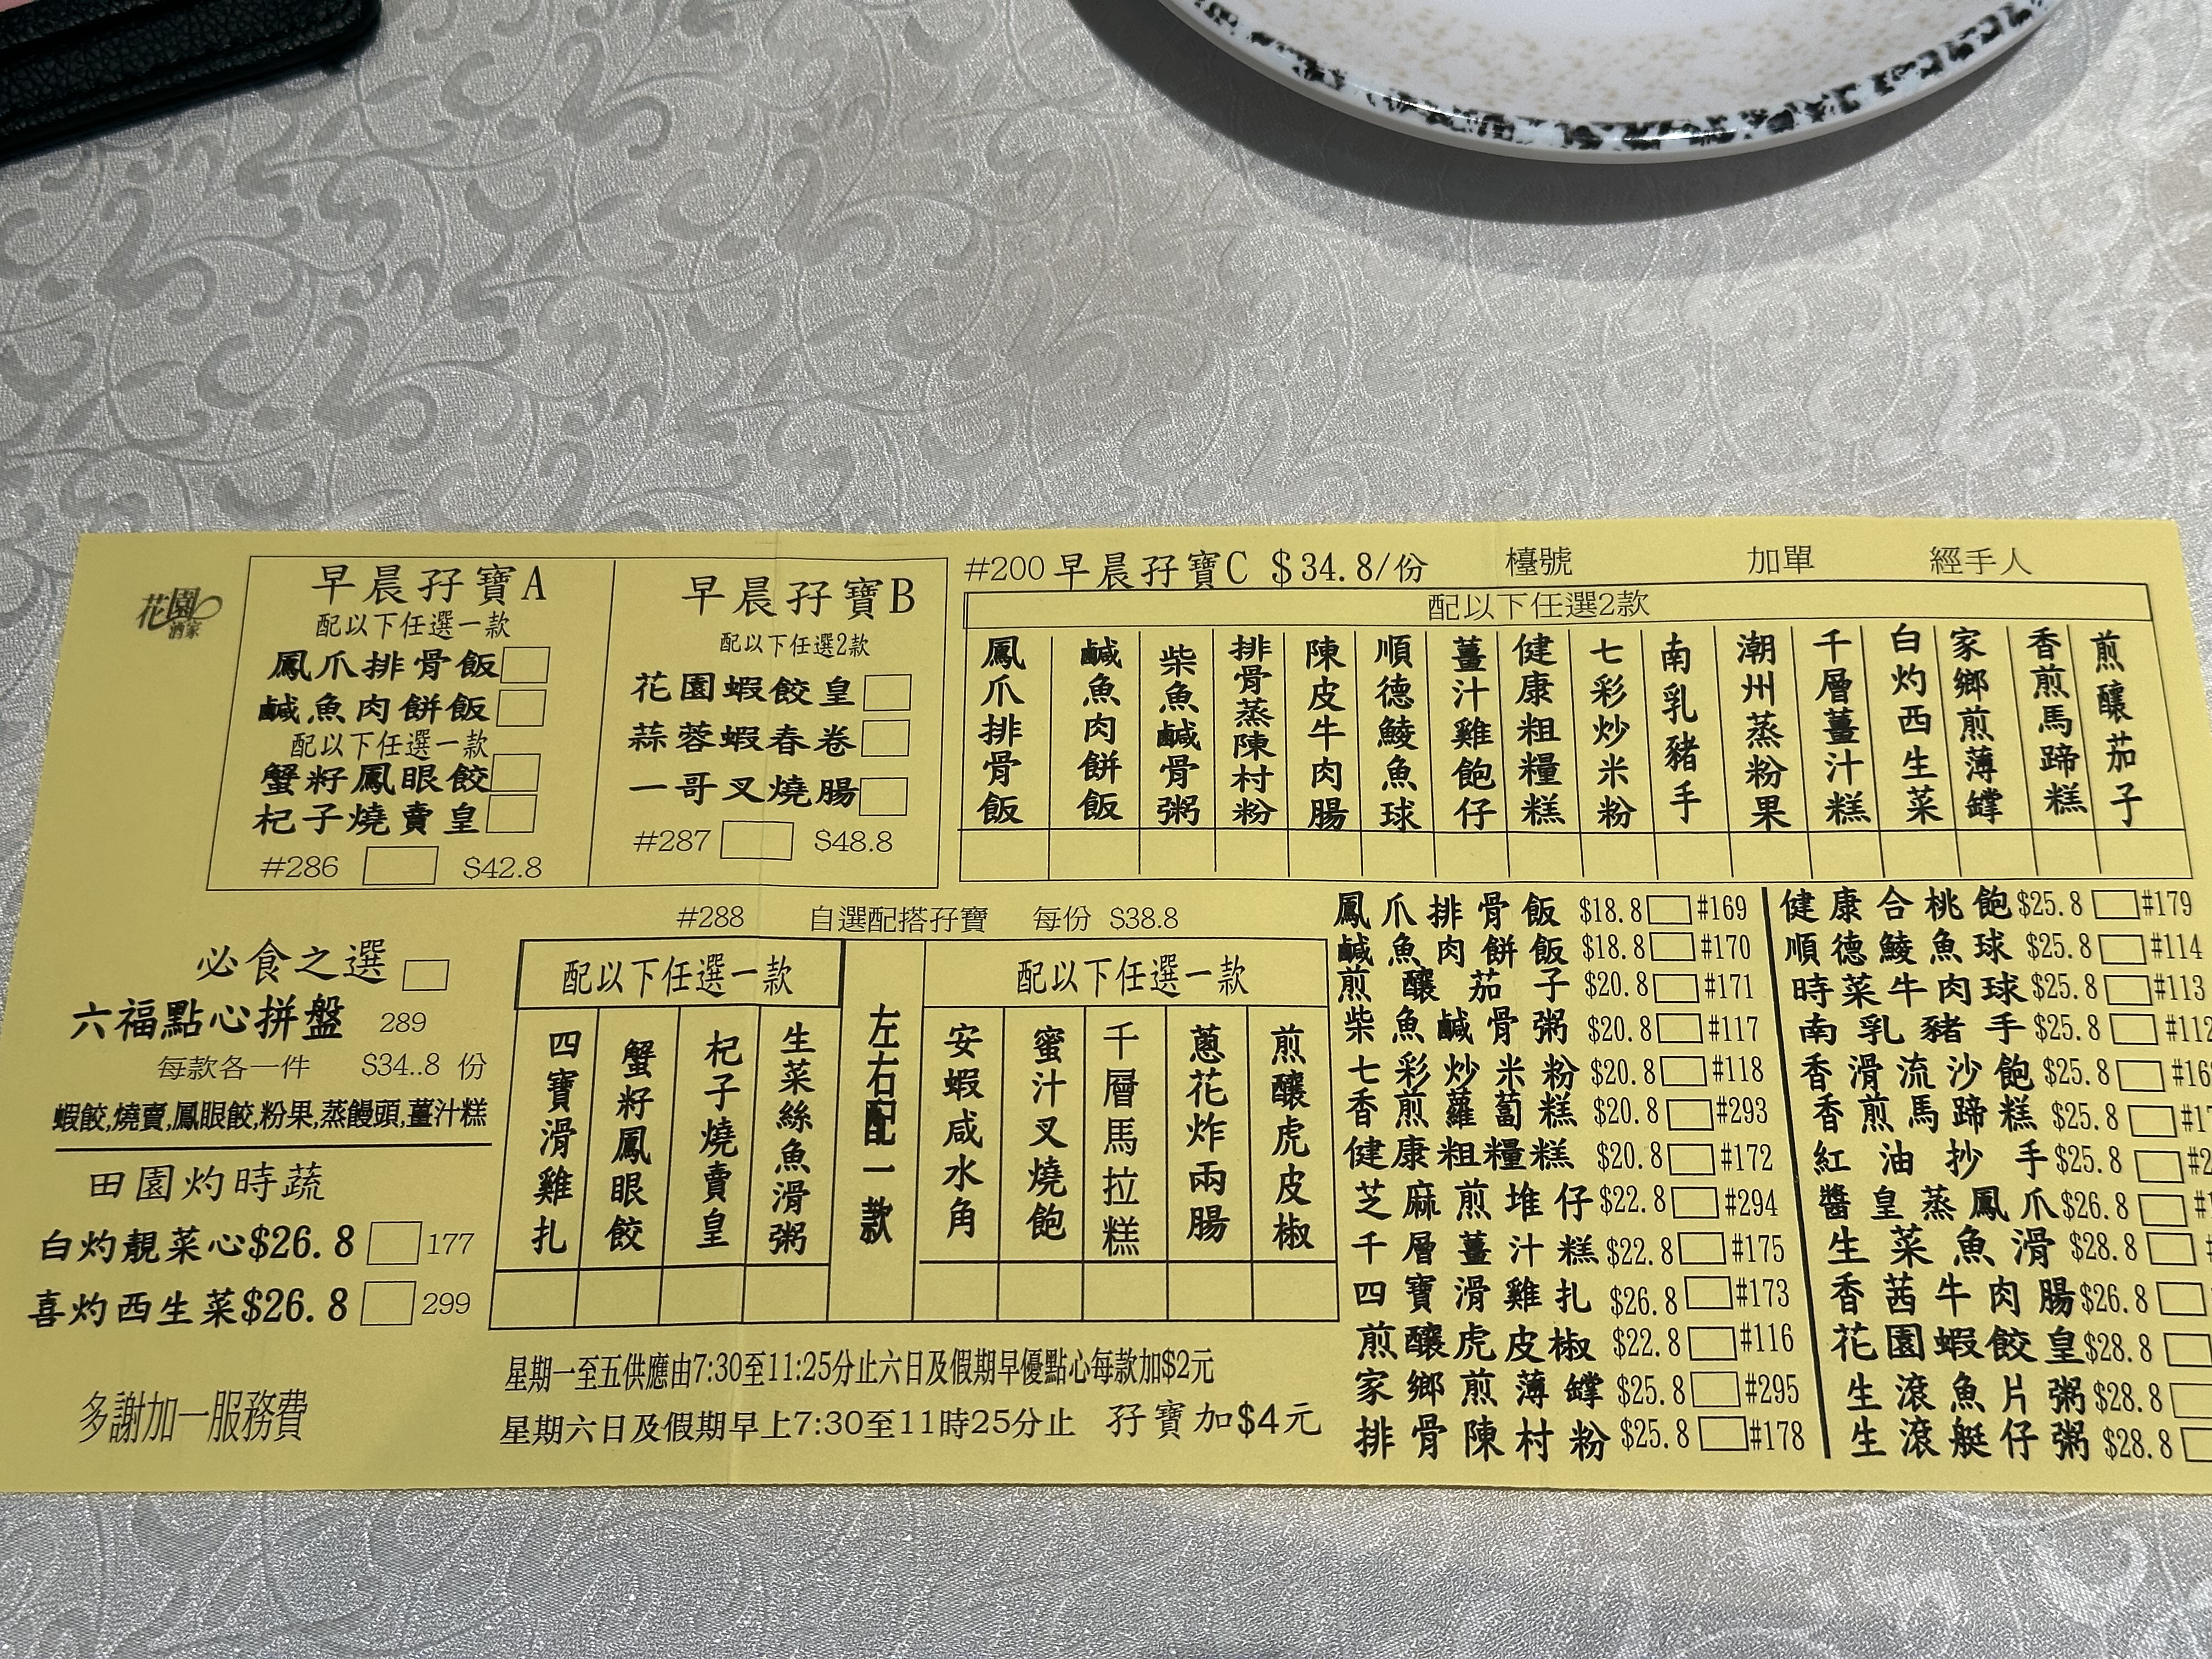 花園
酒家
早晨孖寶A
配以下任選一款
鳳爪排骨飯
鹹魚肉餅飯
配以下任選一款
蟹籽鳳眼餃
杞子燒賣皇
#286 $42.8
早晨孖寶B
配以下任選2款
花園蝦餃皇
蒜蓉蝦春卷
一哥叉燒腸
#287 $48.8
#200 早晨孖寶C $34.8/份 檯號 加單 經手人
配以下任選2款
鳳爪排骨飯
鹹魚肉餅飯
柴魚鹹骨粥
排骨蒸陳村粉
陳皮牛肉腸
順德鯪魚球
薑汁雞飽仔
健康粗糧糕
七彩炒米粉
南乳豬手
潮州蒸粉果
千層薑汁糕
白灼西生菜
家鄉煎薄罉
香煎馬蹄糕
煎釀茄子
必食之選
六福點心拼盤 289
每款各一件 $34..8 份
蝦餃,燒賣,鳳眼餃,粉果,蒸饅頭,薑汁糕
田園灼時蔬
白灼靚菜心$26.8 177
喜灼西生菜$26.8 299
多謝加一服務費
#288 自選配搭孖寶 每份 $38.8
配以下任選一款
四寶滑雞扎
蟹籽鳳眼餃
杞子燒賣皇
生菜絲魚滑粥
左右配一款
配以下任選一款
安蝦咸水角
蜜汁叉燒飽
千層馬拉糕
蔥花炸兩腸
煎釀虎皮椒
星期一至五供應由7:30至11:25分止六日及假期早優點心每款加$2元
星期六日及假期早上7:30至11時25分止 孖寶加$4元
鳳爪排骨飯 $18.8 #169
鹹魚肉餅飯 $18.8 #170
煎釀茄子 $20.8 #171
柴魚鹹骨粥 $20.8 #117
七彩炒米粉 $20.8 #118
香煎蘿蔔糕 $20.8 #293
健康粗糧糕 $20.8 #172
芝麻煎堆仔 $22.8 #294
千層薑汁糕 $22.8 #175
四寶滑雞扎 $26.8 #173
煎釀虎皮椒 $22.8 #116
家鄉煎薄罉 $25.8 #295
排骨陳村粉 $25.8 #178
健康合桃飽 $25.8 #179
順德鯪魚球 $25.8 #114
時菜牛肉球 $25.8 #113
南乳豬手 $25.8 #112
香滑流沙飽 $25.8
香煎馬蹄糕 $25.8
紅油抄手 $25.8
醬皇蒸鳳爪 $26.8
生菜魚滑 $28.8
香茜牛肉腸 $26.8
花園蝦餃皇 $28.8
生滾魚片粥 $28.8
生滾艇仔粥 $28.8